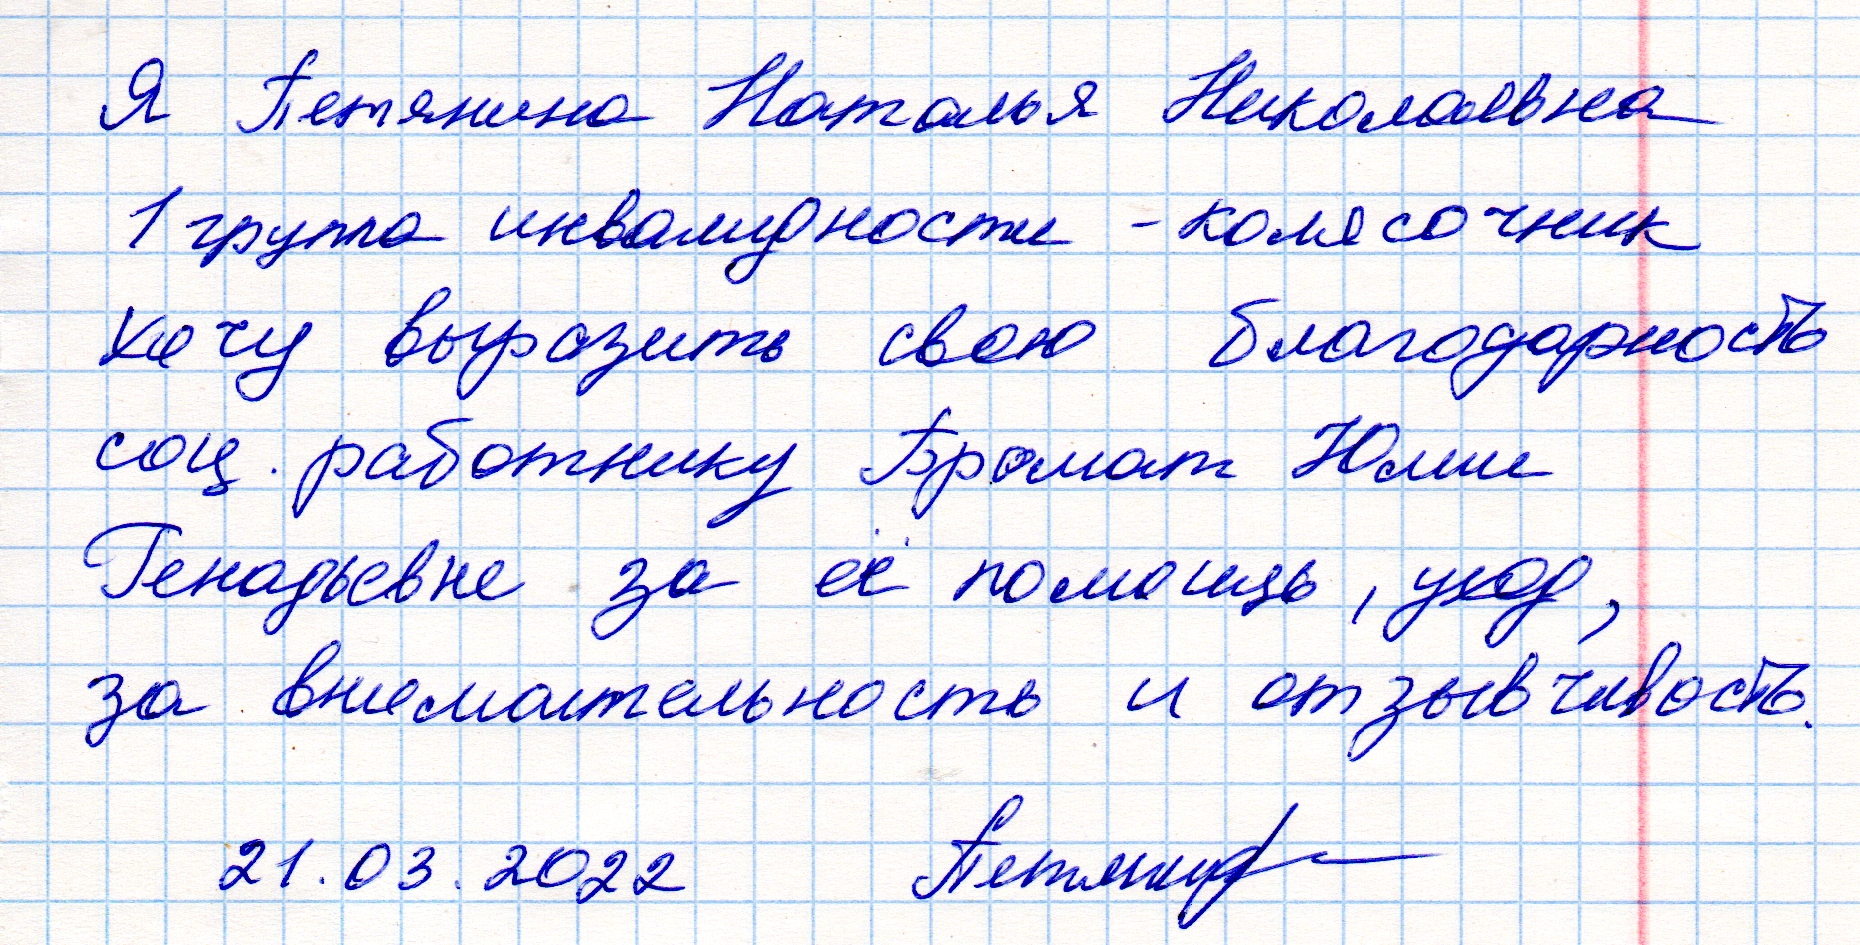 Я Петянина Наталья Николаевна
1 группа инвалидности - колясочник
хочу выразить свою благодарность
соц. работнику Бромат Юлии
Генадьевне за её помощь, уход,
за внимательность и отзывчивость.
21.03.2022